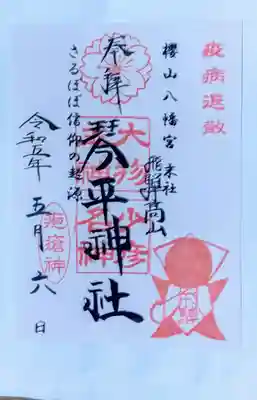 疫病退散
櫻山八幡宮 末社
飛騨高山
奉拝
琴平神社
さるぼぼ信仰の起源
疱瘡神
令和五年
五月六日